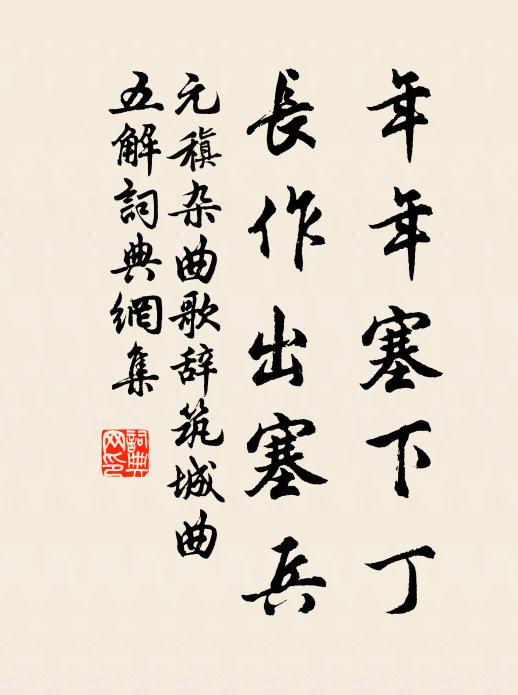 年年塞下丁
長作出塞兵
元稹杂曲歌辞筑城曲
五解詞典網集
詞典
网印